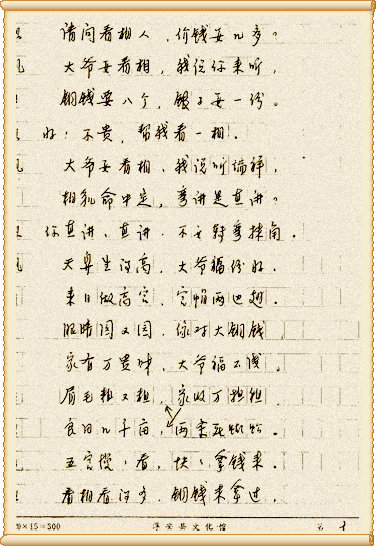 请问看相人，价钱要几多。
大爷要看相，我说你来听，
铜钱要八个，银子要一份。
好！不贵，帮我看一相。
大爷要看相，我说听端详，
相貌命中定，弯讲是直讲。
你直讲，直讲，不要转弯抹角。
天鼻生得高，大爷福份好，
来日做高官，官帽两边翘。
眼睛圆又圆，像对大铜钱，
家有万贯财，大爷福不浅。
眉毛粗又粗，家收万担租
良田几千亩，两条死蜈蚣。
五官慢慢看，快快拿钱来。
看相看得多，铜钱未拿过，
20×15=300 淳安县文化馆 第 页